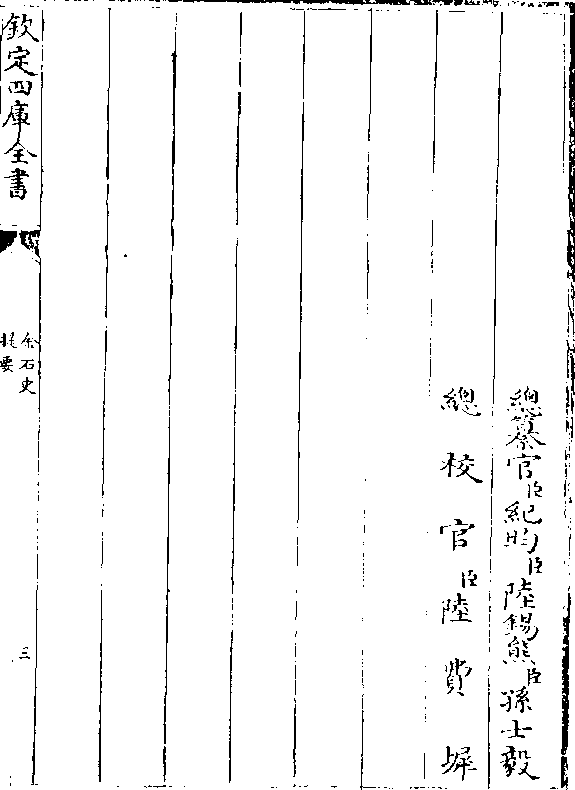 總纂官臣紀昀臣陸錫熊臣孫士毅
總校官臣陸費墀
欽定四庫全書
金石史
提要
三